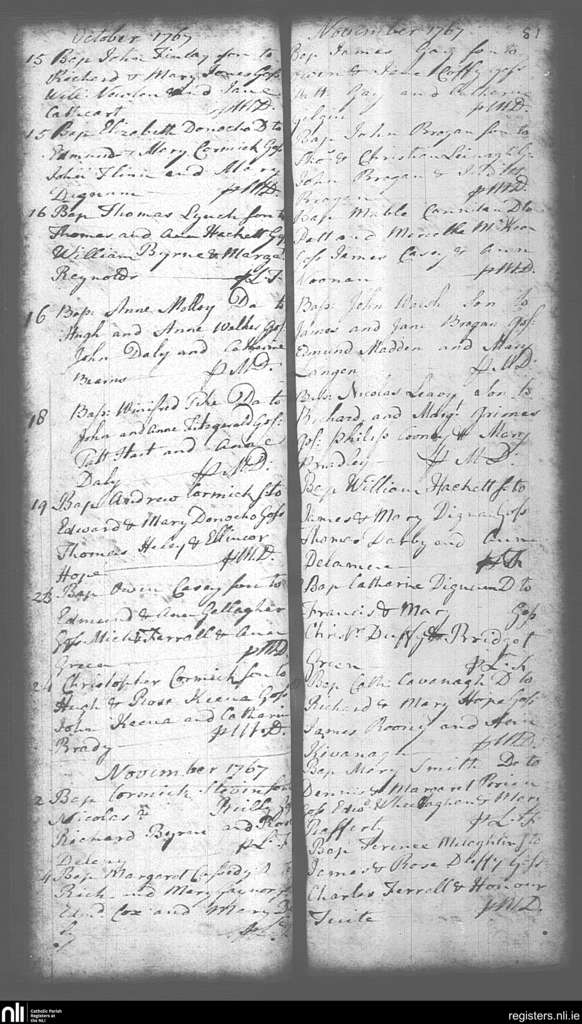 October 1767
15 Bap John Finlay son to
Richard & Mary Jones Gos
Will: Newlan and Jane
Cathcart pMD.
15 Bap Elizabeth Donocho D to
Edmund & Mary Cormick Gos
John Flinn and Mary
Dignum pMD.
16 Bap Thomas Lynch son to
Thomas and Ann Hackett Gos
William Byrne & Margt
Reynolds pL.F.
16 Bap: Anne Molloy Da to
Hugh and Anne Walker Gos:
John Daly and Catharine
Bearns pMD.
18 Bap: Winifred Fike Da to
John and Anne Fitzgerald Gos:
Patt Hart and Anne
Daly pMD.
19 Bap Andrew Cormick S to
Edward & Mary Donocho Gos
Thomas Heley & Ellinor
Hope pMD.
23 Bap Owen Casey son to
Edmund & Ann Gallagher
Gos Mich: Ferrall & Anne
Green pMD
24 Christopher Cormick son to
Hugh & Rose Keena Gos
John Keena and Catharin
Brady pMD.
November 1767
2 Bap Cormick Stevenson
Nicolas Reilly
Richard Byrne and Rose
Deleny pL.F
4 Bap Margaret Cassidy D
Rich and Mary
Edmd Cox and Mary
November 1767 81
Bap James Gay son to
Owen & Jane Coffy Gos
Gay and Catharine
pMD.
Bap John Brogan son to
Thos & Christian Gos
John Brogan &
Brogan pMD.
Bap Mable D to
Patt and
Gos James Casey & Ann
Noonan pMD.
Bap: John Walsh Son to
James and Jane Brogan Gos
Edmund Madden and Mary
Langen pMD.
Bap: Nicolas Leavy Son to
Richard and Margt Grimes
Gos: Philip Cooney & Mary
Bradley pMD.
Bap William Hackett S to
James & Mary Dignan Gos
Thomas Darby and Anne
Delamere pLF
Bap Catharine Digneum D to
Francis & Mary Gos
Christr Duffy & Bridget
Green pL.F
Bap Cath: Cavanagh D to
Richard & Mary Hope Gos
James Rooney and Ann
Kivanagh pMD.
Bap Mary Smith Da to
Dennis & Margaret
Gos Edwd & Mary
Rafferty pL.F.
Bap Terence McLaghlin S to
James & Rose Duffy Gos
Charles Ferrall & Honour
Tuite pMD.
nli
Catholic Parish
Registers at
the NLI
registers.nli.ie